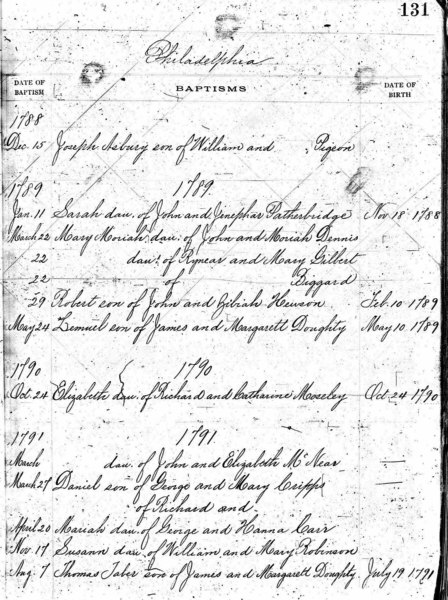 131
Philadelphia
DATE OF BAPTISM
BAPTISMS
DATE OF BIRTH
1788
Dec. 15 Joseph Asbury son of William and Pigeon
1789 1789
Jan. 11 Sarah dau. of John and Jenephar Fatherbridge Nov 18 1788
March 22 Mary Moriah dau. of John and Moriah Dennis
22 dau. of Rymear and Mary Gilbert
22 of Biggard
29 Robert son of John and Zibiah Hewson Feb. 10 1789
May 24 Lemuel son of James and Margarett Doughty May 10 1789
1790 1790
Oct. 24 Elizabeth dau. of Richard and Catharine Moseley Oct 24 1790
1791 1791
March dau. of John and Elizabeth McNear
March 27 Daniel son of George and Mary Cripps
of Richard and
April 20 Mariah dau. of George and Hanna Carr
Nov 17 Susann dau. of William and Mary Robinson
Aug. 7 Thomas Tabir son of James and Margarett Doughty July 19 1791